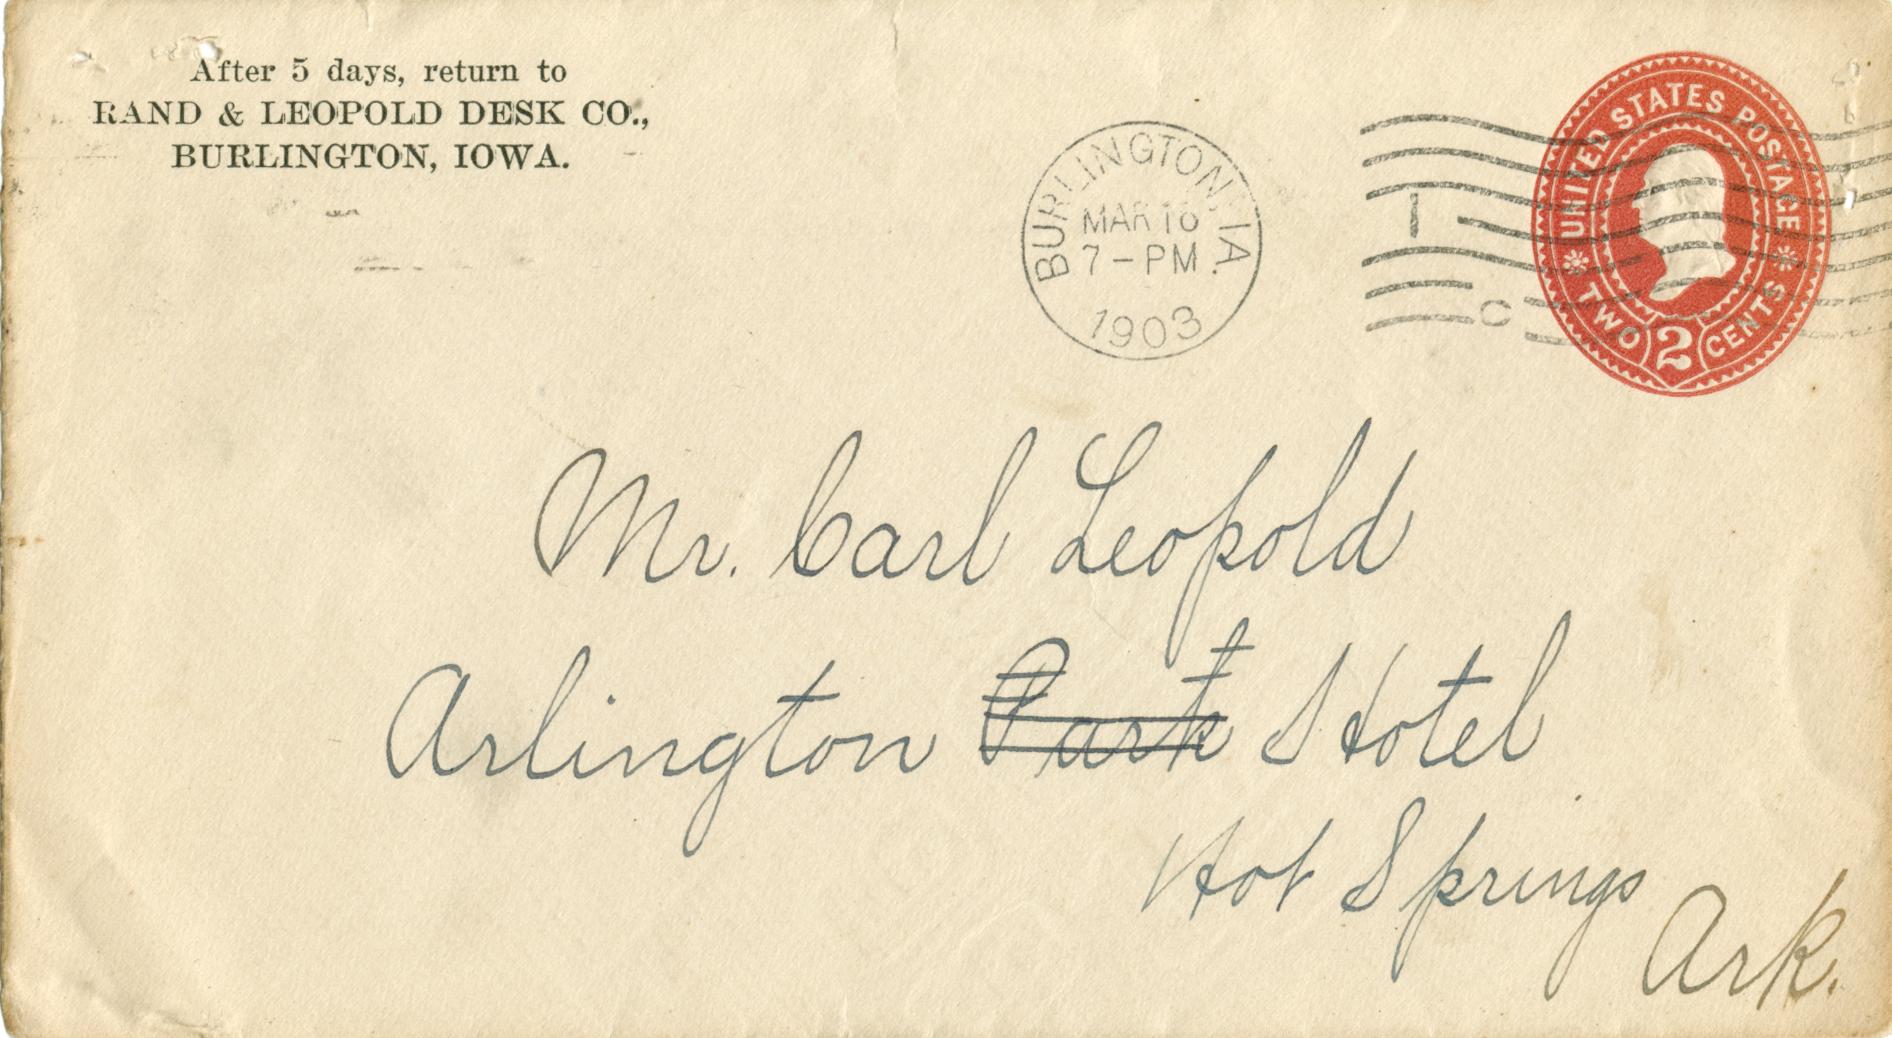 After 5 days, return to
RAND & LEOPOLD DESK CO.,
BURLINGTON, IOWA.
BURLINGTON, IA.
MAR 16
7-PM
1903
1
C
UNITED STATES POSTAGE
TWO 2 CENTS
Mr. Carl Leopold
Arlington Park Hotel
Hot Springs
Ark.